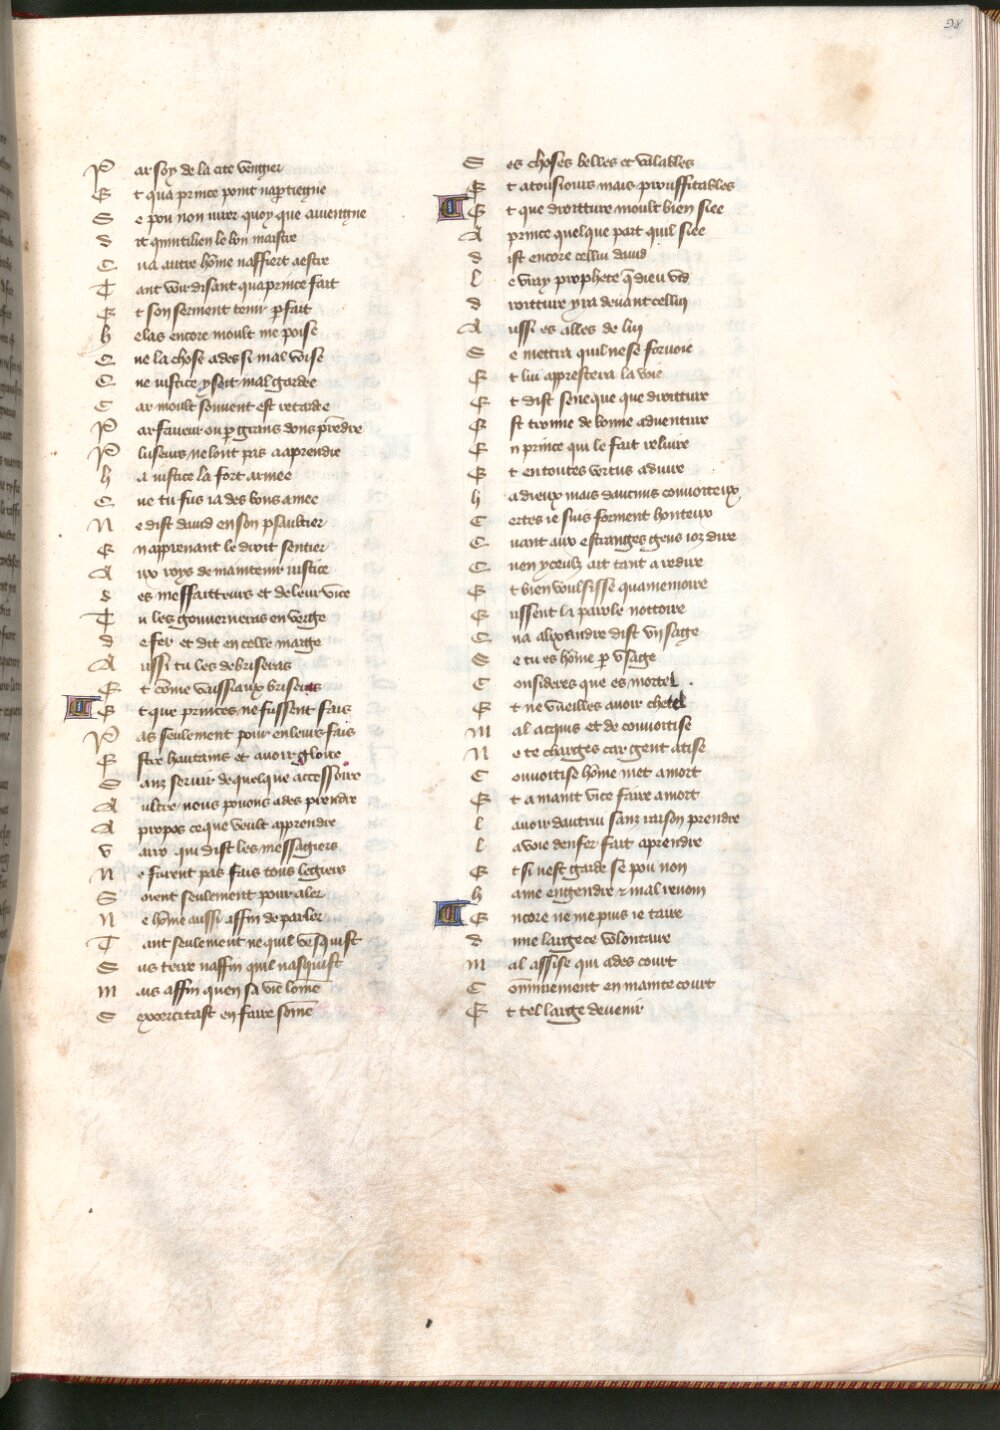 98
P ar soy de la cite vengier
E t qua prince point napartiegne
S e pou non jurer quoy que aviengne
d it quintilien le bon maistre
C un autre hōme naffiert a estre
T ant voir disant qua prince fait
E t son serment tenir parfait
h elas encore moult me poise
Q ue la chose ades si mal voise
Q ue justice y soit mal gardee
C ar moult souvent est retardee
P ar faveur ou par grans dons prēdre
P luseurs ne lont pas a aprendre
h a justice la fort armee
Q ue tu fus ja des bons amee
N e dist david en son psaultier
E n apprenant le droit sentier
A ux roys de maintenir justice
d es meffaitteurs et de leur vice
T u les gouverneras en verge
d e fer et dit en celle marge
A ussi tu les debriseras
E t cōme vaissiaux briseras
E t que princes ne fussent fais
P as seulement pour en leurs fais
E stre haultains et avoir gloire
S anz servir de quelque accessoire
A ultre nous povons ades prendre
A propos ce que veult apprendre
V arro qui dist les messagiers
N e furent pas fais tous legiers
S oient seulement pour aler
N e hōme aussi affin de parler
T ant seulement ne quil vesquist
S us terre naffin quil nasquist
M ais affin quen sa vie lōme
S exxercitast en faire sōme
S es choses belles et vallables
E t a tousjours mais prouffitables
E t que droitture moult bien siee
A prince quelque part quil siee
d ist encore cellui david
l e vray prophete q̄ dieu vid
d roitture yra devant celluy
A ussi es alles de luy
S e mettra quil ne se forvoie
E t lui apprestera la voie
E t dist seneque que droitture
E st tronne de bonne adventure
E n prince qui le fait reluire
E t en toutes vertus aduire
h a dieux mais daucuns convoiteux
C ertes je suis forment honteux
Q uant aux estranges gens joz dire
Q uen yceulz ait tant a redire
E t bien voulsisse quamemoire
E ussent la parole nottoire
Q ua alixandre dist un sage
S e tu es hōme par usage
C onsideres que es mortel
E t ne vueilles avoir chetel
M al acquis et de convoitise
N e te charges car gent atise
C onvoitise hōme met a mort
E t a maint vice faire amort
l avoir dautrui sanz raison prendre
l a voie denfer fait aprendre
E t si nest garde se pou non
h ame engendre et mal renom
E ncore ne me puis je taire
d une largece volontaire
M al assise qui ades court
C ōmunement en mainte court
E t tel large devenir